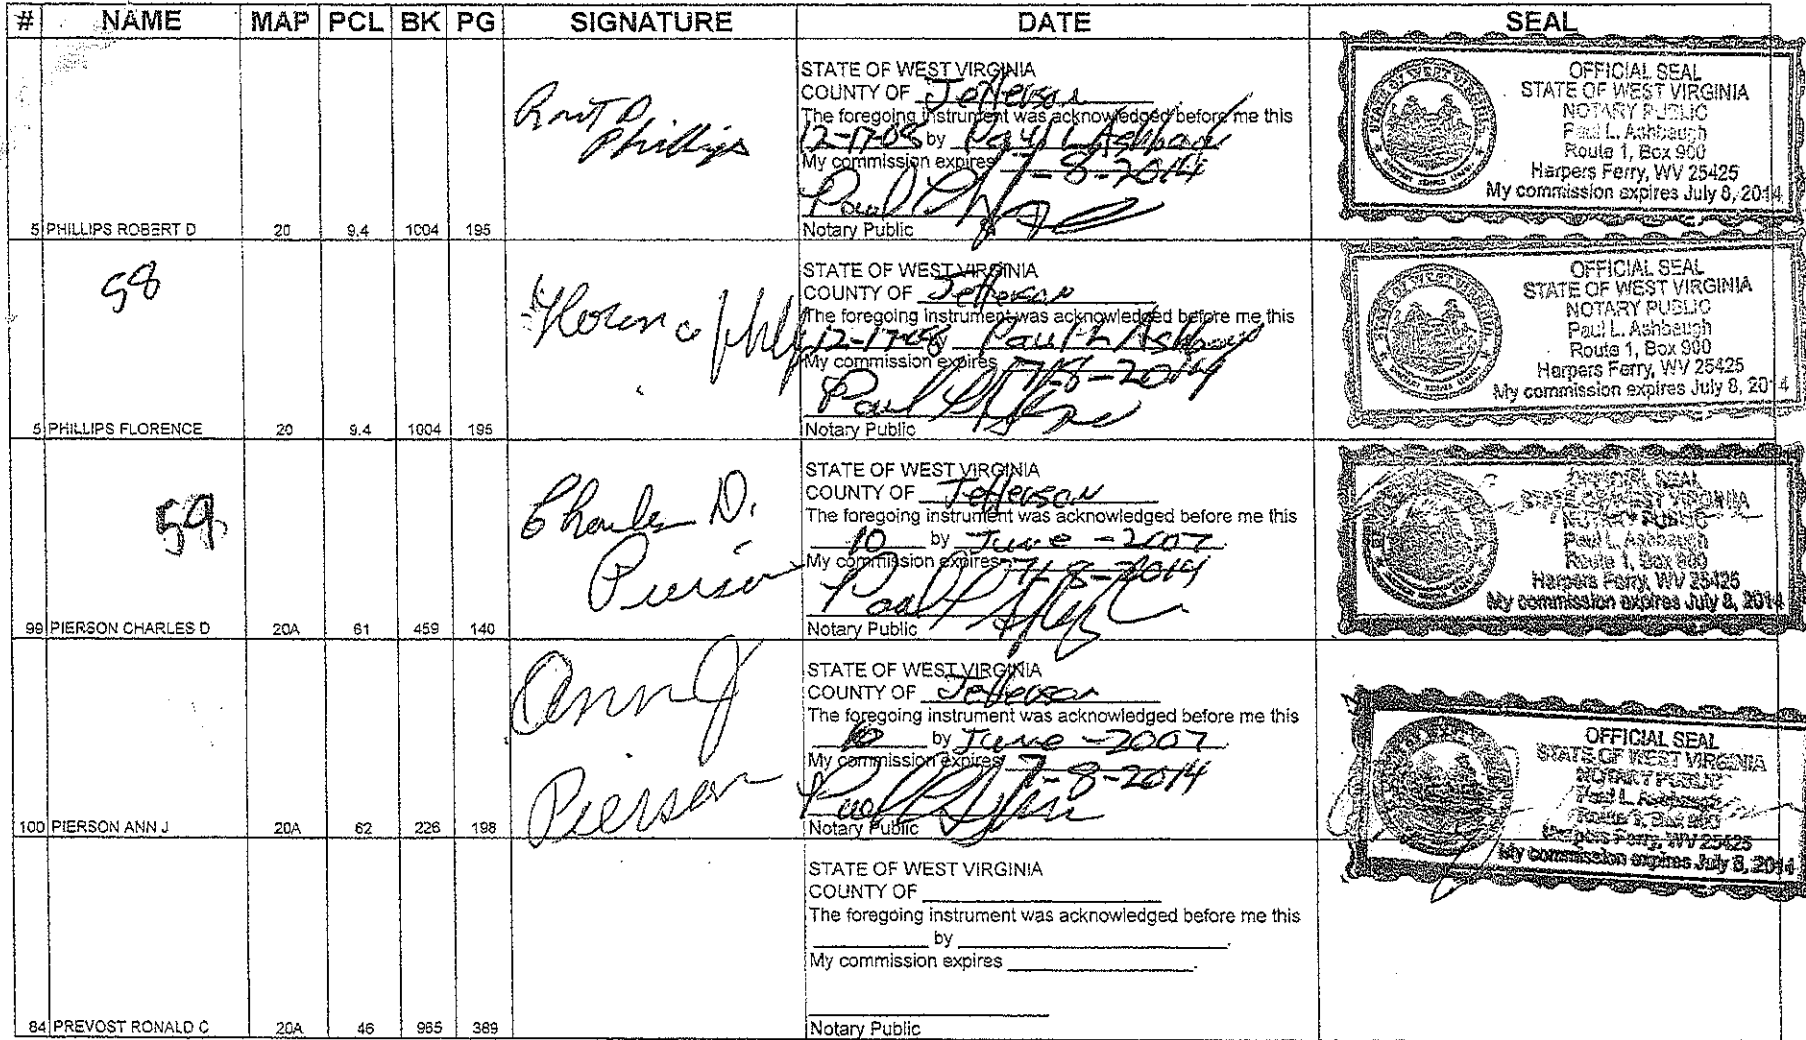 # NAME MAP PCL BK PG SIGNATURE DATE SEAL
Phillips
STATE OF WEST VIRGINIA
COUNTY OF Jefferson
The foregoing instrument was acknowledged before me this
12-17-08 by Paul L Ashbaugh
My commission expires 7-8-2014
Notary Public
OFFICIAL SEAL
STATE OF WEST VIRGINIA
NOTARY PUBLIC
Paul L. Ashbaugh
Route 1, Box 900
Harpers Ferry, WV 25425
My commission expires July 8, 2014
5 PHILLIPS ROBERT D 20 9.4 1004 195
58
STATE OF WEST VIRGINIA
COUNTY OF Jefferson
The foregoing instrument was acknowledged before me this
12-17-08 by Paul L Ashbaugh
My commission expires 7-8-2014
Notary Public
OFFICIAL SEAL
STATE OF WEST VIRGINIA
NOTARY PUBLIC
Paul L. Ashbaugh
Route 1, Box 900
Harpers Ferry, WV 25425
My commission expires July 8, 2014
5 PHILLIPS FLORENCE 20 9.4 1004 195
59
Charles D.
Pierson
STATE OF WEST VIRGINIA
COUNTY OF Jefferson
The foregoing instrument was acknowledged before me this
10 by June - 2007.
My commission expires 7-8-2014
Notary Public
OFFICIAL SEAL
STATE OF WEST VIRGINIA
NOTARY PUBLIC
Paul L. Ashbaugh
Route 1, Box 900
Harpers Ferry, WV 25425
My commission expires July 8, 2014
99 PIERSON CHARLES D 20A 61 459 140
Ann J
Pierson
STATE OF WEST VIRGINIA
COUNTY OF Jefferson
The foregoing instrument was acknowledged before me this
10 by June - 2007.
My commission expires 7-8-2014
Notary Public
OFFICIAL SEAL
STATE OF WEST VIRGINIA
NOTARY PUBLIC
Paul L. Ashbaugh
Route 1, Box 900
Harpers Ferry, WV 25425
My commission expires July 8, 2014
100 PIERSON ANN J 20A 62 226 198
STATE OF WEST VIRGINIA
COUNTY OF
The foregoing instrument was acknowledged before me this
by .
My commission expires .
Notary Public
84 PREVOST RONALD C 20A 46 965 389